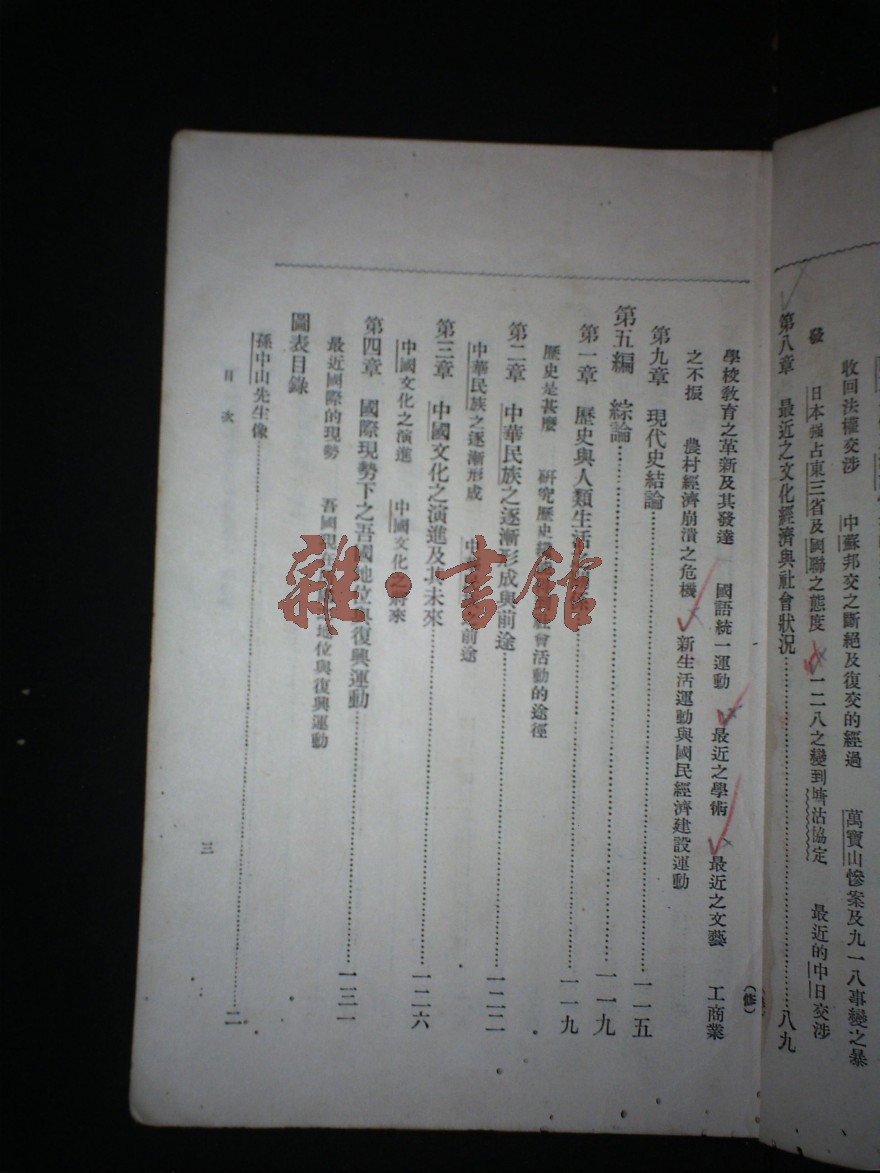 收回法權交涉　中蘇邦交之斷絕及復交的經過　萬寶山慘案及九一八事變之暴
發　日本強占東三省及國聯之態度　一二八之變到塘沽協定　最近的中日交涉
第八章　最近之文化經濟與社會狀況…………八九
(修)
學校敎育之革新及其發達　國語統一運動　最近之學術　最近之文藝　工商業
之不振　農村經濟崩潰之危機　新生活運動與國民經濟建設運動
第九章　現代史結論…………一一五
第五編　綜論…………一一九
第一章　歷史與人類生活…………一一九
歷史是甚麼　研究歷史　社會活動的途徑
第二章　中華民族之逐漸形成與前途…………一二二
中華民族之逐漸形成　中　前途
第三章　中國文化之演進及其未來…………一二六
中國文化之演進　中國文化之將來
第四章　國際現勢下之吾國地位與復興運動…………一三一
最近國際的現勢　吾國現在　地位與復興運動
圖表目錄
孫中山先生像…………二
目次
三
雜·書館